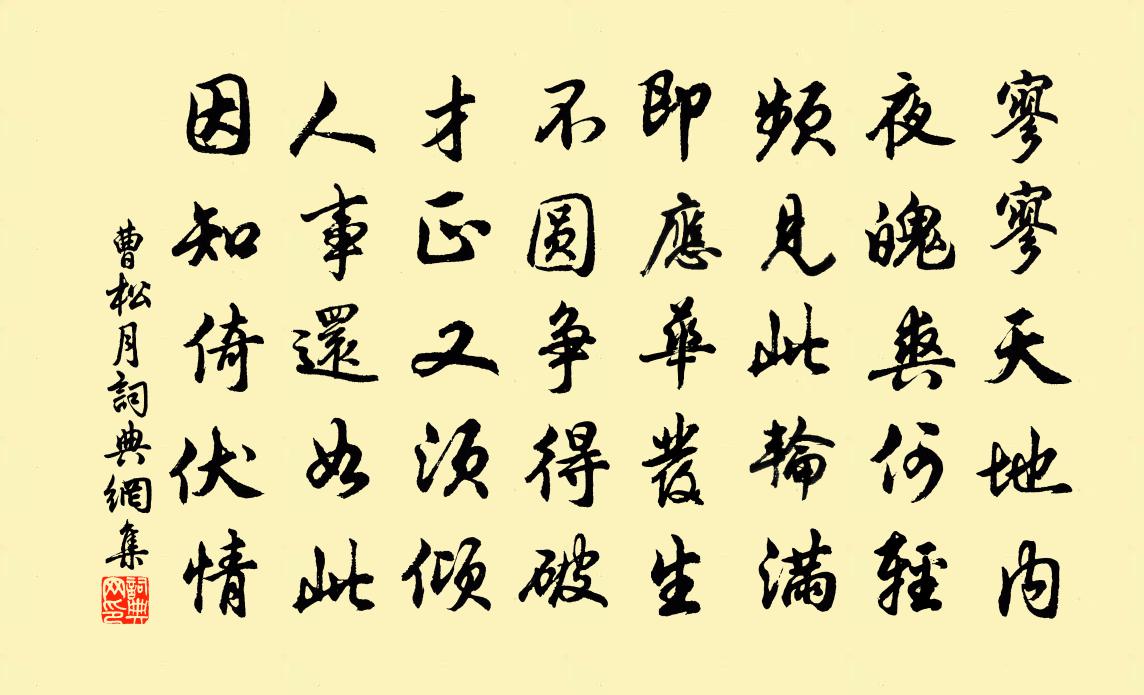 寥寥天地内
夜魄爽何輕
頻見此輪滿
即應華發生
不圓争得破
才正又須傾
人事還如此
因知倚伏情
曹松月詞典網集
詞典网印